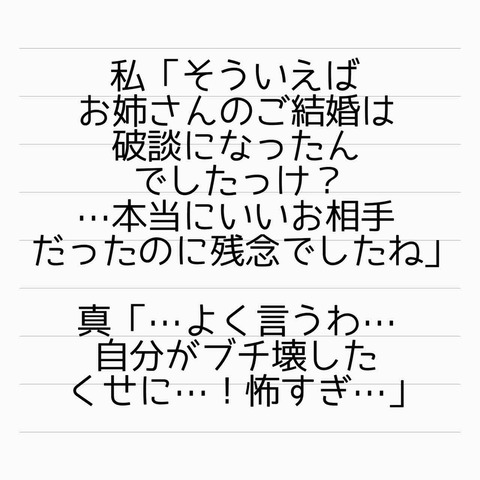 私「そういえば
お姉さんのご結婚は
破談になったん
でしたっけ？
…本当にいいお相手
だったのに残念でしたね」
真「…よく言うわ…
自分がブチ壊した
くせに…！怖すぎ…」